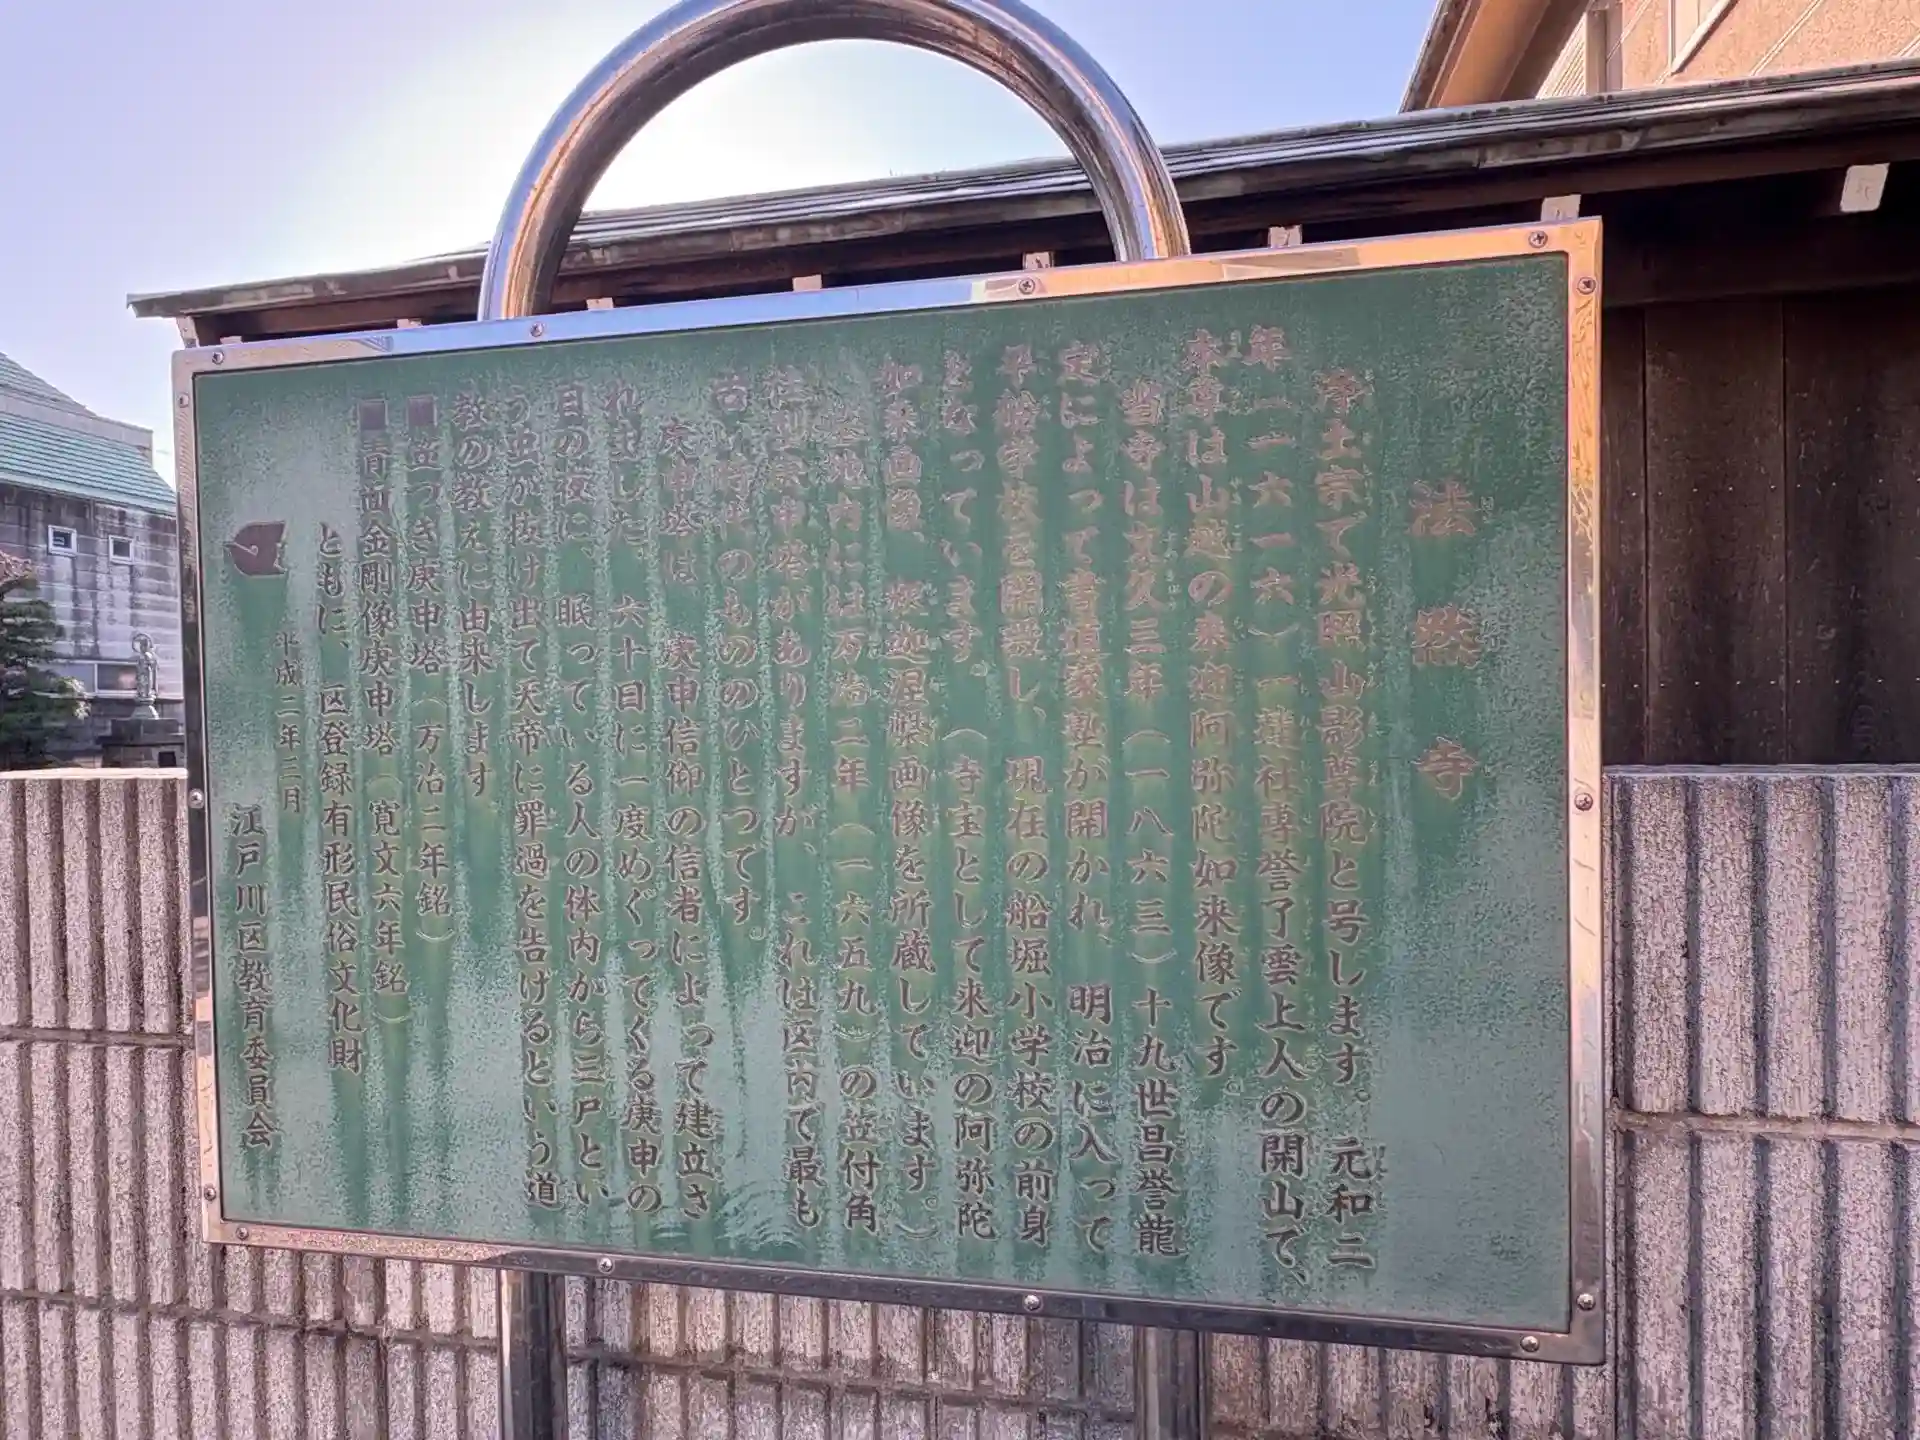 法然寺
浄土宗で光照山影尊院と号します。元和二
年(一六一六)一蓮社専誉了雲上人の開山で、
本尊は山越の来迎阿弥陀如来像です。
当寺は文久三年(一八六三)十九世昌誉龍
定によって書道家塾が開かれ、明治に入って
平船学校を開設し、現在の船堀小学校の前身
となっています。(寺宝として来迎の阿弥陀
如来画像、釈迦涅槃画像を所蔵しています。)
墓地内には万治二年(一六五九)の笠付角
柱型庚申塔がありますが、これは区内で最も
古い時代のもののひとつです。
庚申塔は、庚申信仰の信者によって建立さ
れました。六十日に一度めぐってくる庚申の
日の夜に、眠っている人の体内から三尸とい
う虫が抜け出て天帝に罪過を告げるという道
教の教えに由来します
■笠つき庚申塔(万治二年銘)
■青面金剛像庚申塔(寛文六年銘)
ともに、区登録有形民俗文化財
平成二年三月
江戸川区教育委員会